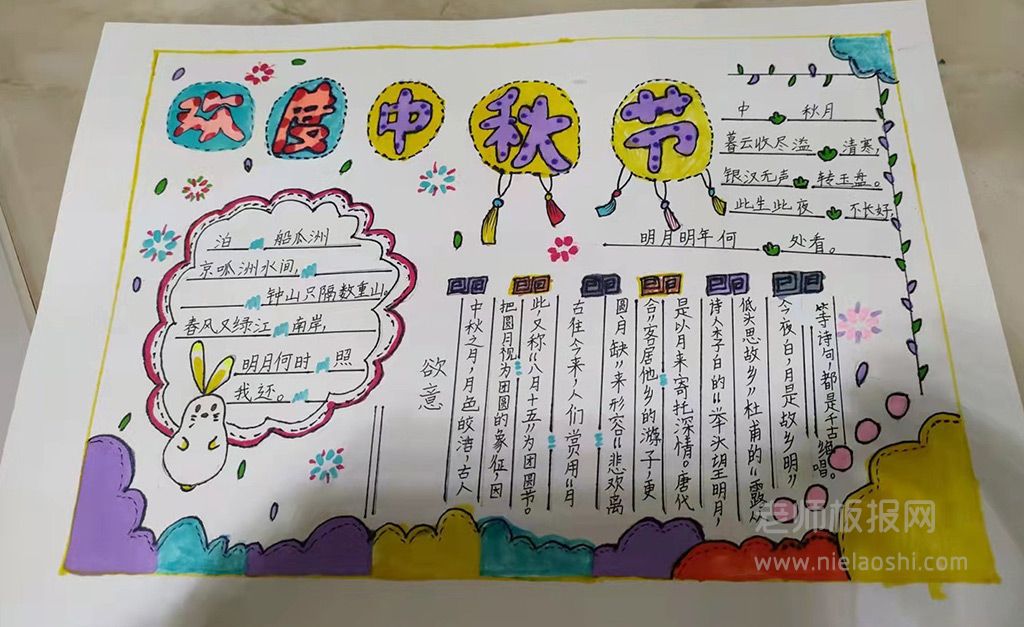 欢度中秋节
中 秋月
暮云收尽溢 清寒,
银汉无声 转玉盘。
此生此夜 不长好,
明月明年何 处看。
泊 船瓜洲
京呱洲水间,
钟山只隔数重山。
春风又绿江 南岸,
明月何时 照
我还。
欲意
中秋之月,月色皎洁,古人
把圆月视为团圆的象征,因
此,又称“八月十五”为团圆节。
古往今来,人们赏用“月
圆月缺”来形容“悲欢离
合,客居他乡的游子,更
是以月来寄托深情。唐代
诗人李白的“举头望明月,
低头思故乡”杜甫的“露从
今夜白,月是故乡明”
等诗句,都是千古绝唱。
老师板报网
www.nielaoshi.com